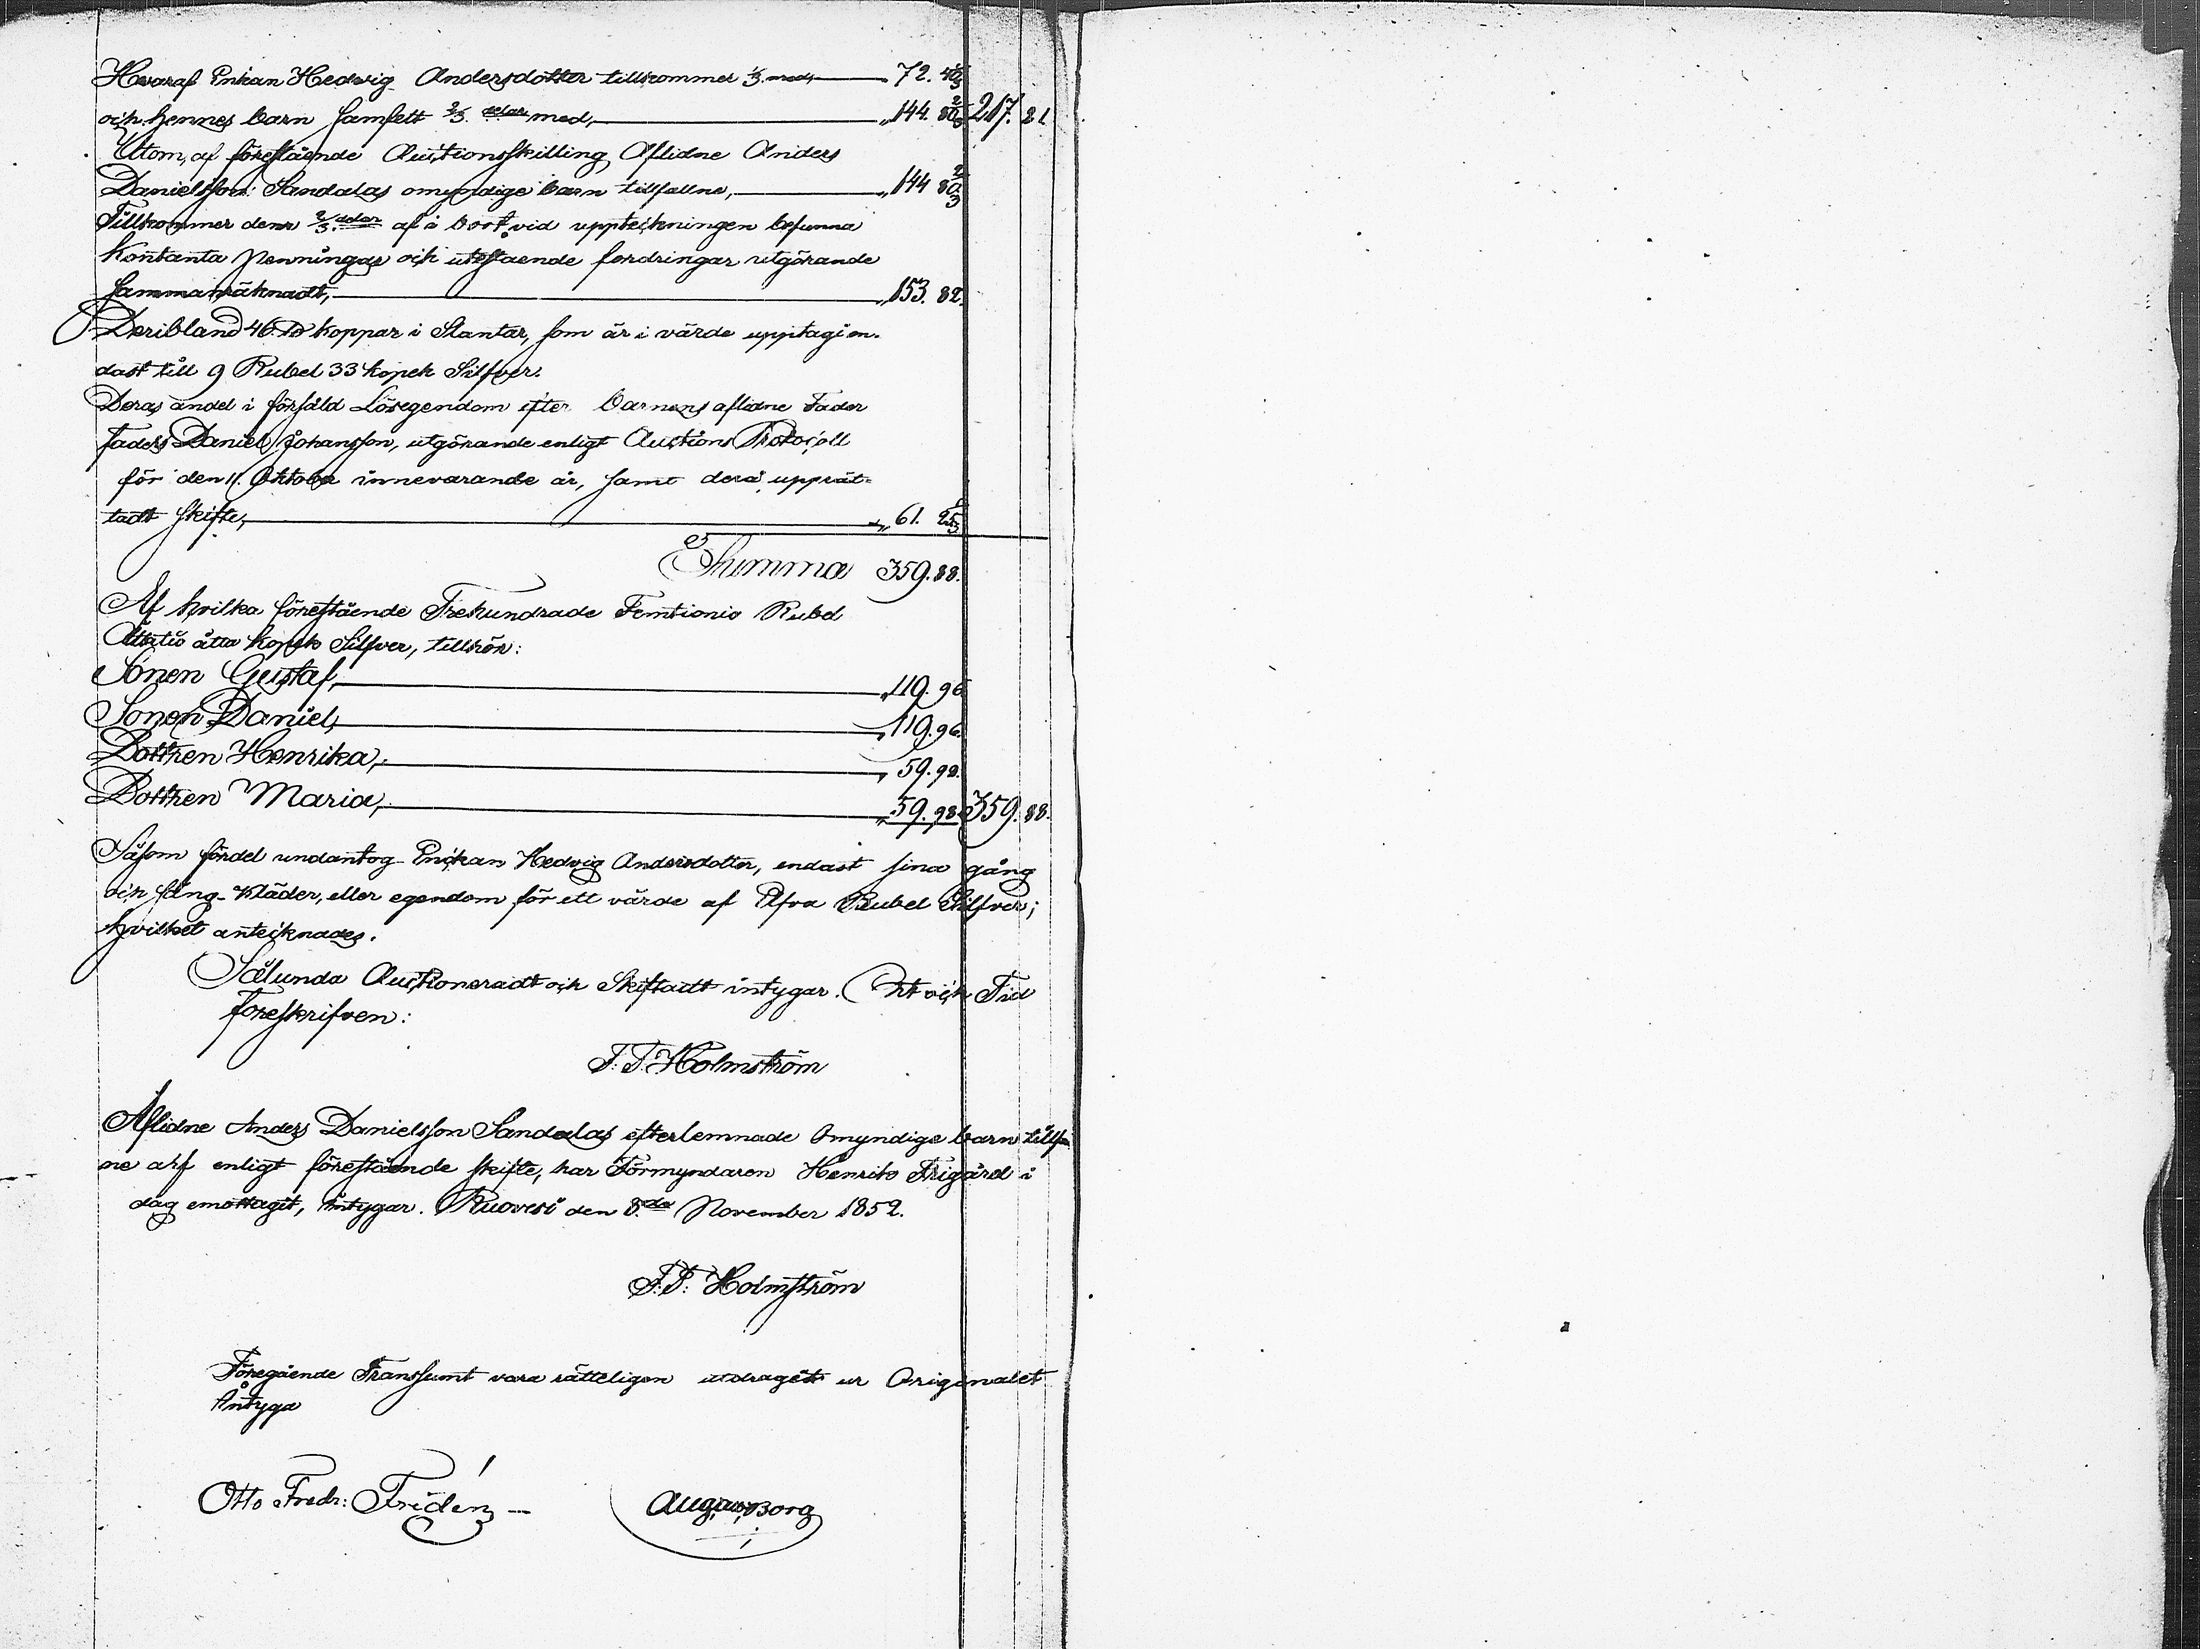 Hvaraf Enkan Hedvig Andersdotter tillkommer 1/3 med, 72. 40 1/3
och hennes barn samfelt 2/3 delar med, „144. 80 2/3 217. 21
Utom, af förestående Auctionsskilling Aflidne Anders
Danielsson Sandalas omyndige barn tillfallne, „144 80 2/3
Tillkommer dem 2/3 delar af å bort, vid uppteckningen befunna
Kontanta penningar och utestående fordringar utgörande
sammanräknadt, „153. 82.
Deribland 46 ℔ koppar i Slantar, som är i värde upptagi en-
dast till 9 Rubel 33 kopek Silfver.
Deras andel i försåld Lösegendom efter barnens aflidne Fader
faders Daniel Johansson, utgörande enligt Auctions Protocoll
för den 11. Oktober innevarande år, samt derå upprät-
tadt skifte, „61. 25 1/3
Summa 359. 88.
Af hvilka förestående Trehundrade Femtionio Rubel
Åttatio åtta kopek Silfver, tillhör:
Sonen Gustaf, „119. 96
Sonen Daniel, „119. 96.
Dottren Henrika, „59. 98.
Dottren Maria, „59. 98. 359. 88.
Såsom fördel undantog Enckan Hedvig Andersdotter, endast sina gång
och säng-kläder, eller egendom för ett värde af Elfva Rubel Silfver;
hvilket antecknades.
Sålunda Auctioneradt och Skiftadt intygar. Ort och Tid
föreskrifven:
F. F. Holmström
Aflidne Anders Danielsson Sandalas efterlemnade Omyndige barn tillfal
ne arf enligt förestående skifte, har Förmyndaren Henrik Frigård i
dag emottagit, intygar. Ruovesi den 8.de November 1852.
F. F. Holmström
Föregående Transsumt vara rätteligen utdraget ur Originalet
Intyga
Otto Fredr: Fridén August Borg